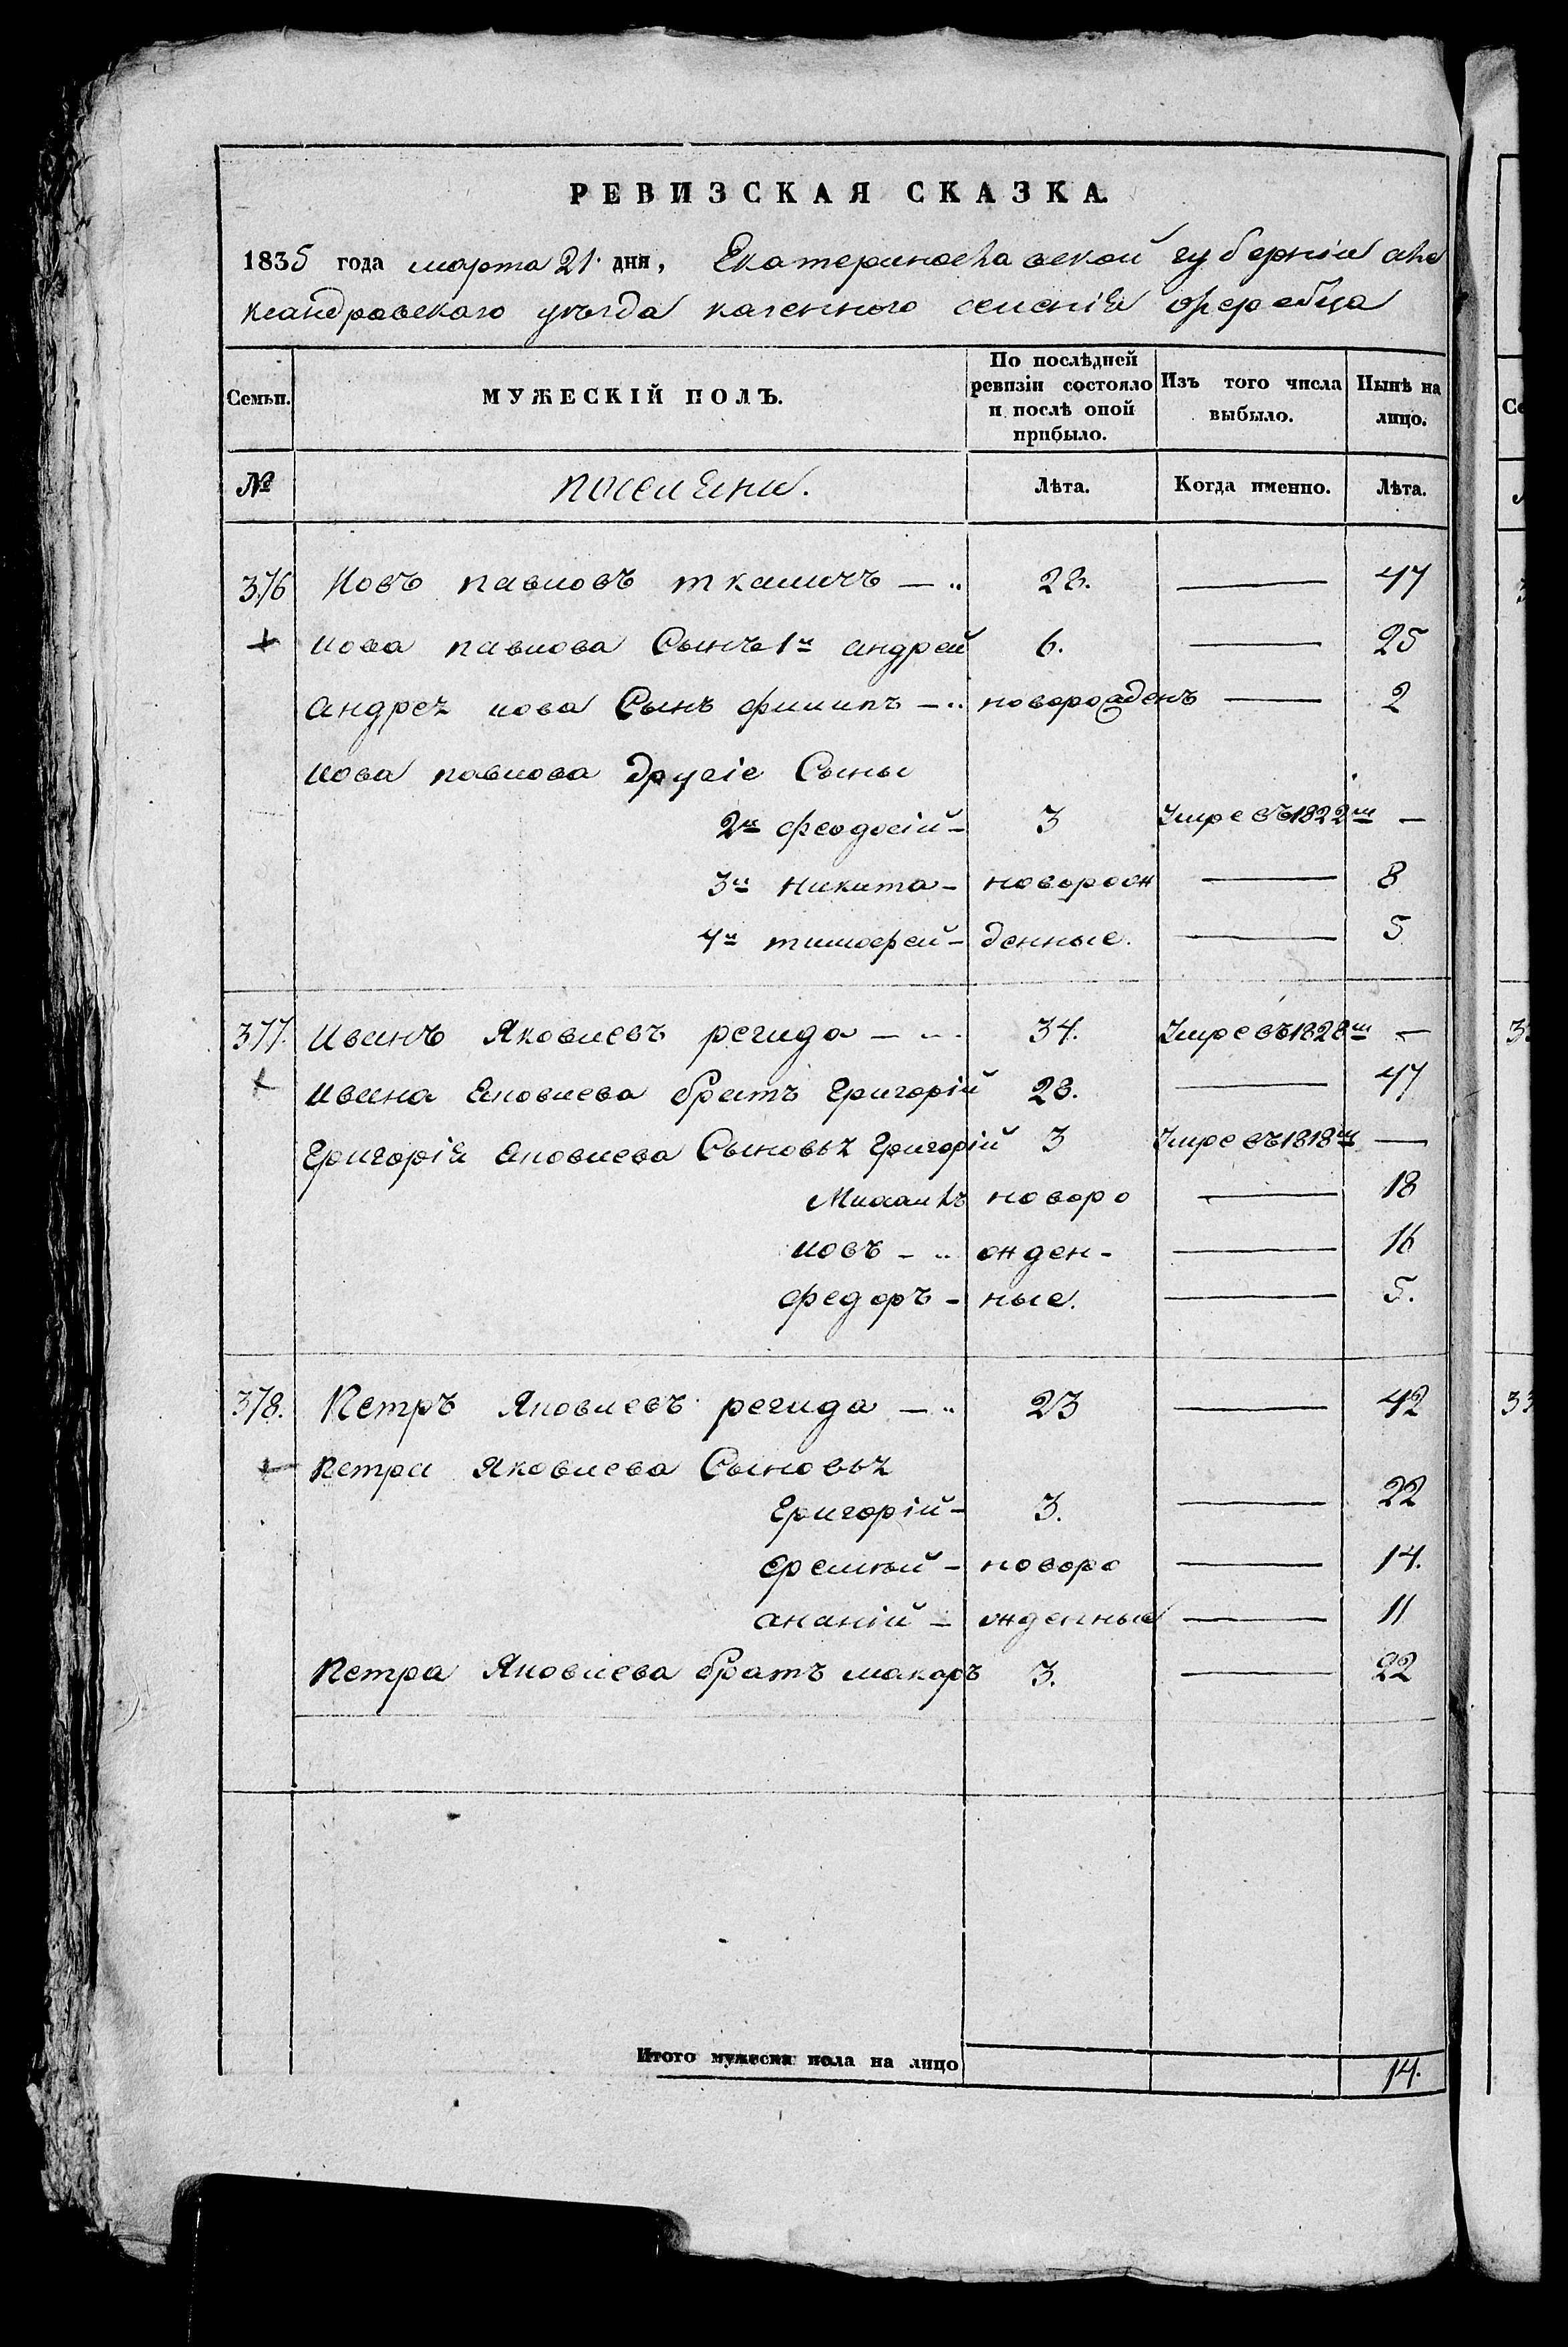 РЕВИЗСКАЯ СКАЗКА.
1835 года марта 21. дня, Екатеринославской губерніи але
ксандровскаго уѣзда казенного селенія жеребца
Семьи. МУЖЕСКІЙ ПОЛЪ. По послѣдней ревизіи состояло и послѣ оной прибыло. Изъ того числа выбыло. Нынѣ на лицо.
№ поселяни. Лѣта. Когда именно. Лѣта.
376 Иовъ павловъ ткаличъ — 28. — 47
+ иова павлова Сынъ 1й андрей 6. — 25
андрея иова Сынъ филипъ — новорожденъ — 2
иова павлова другіе Сыны
2й феодосій - 3 Умре въ 1822м —
3й никита - новорож — 8
4й тимофей - денные. — 5
377. иванъ Яковлевъ регида — 34. Умре въ 1828м —
+ ивана яковлева братъ григорій 28. — 47
григорія яковлева Сыновья григорій 3 Умре въ 1818м —
Михаилъ новоро — 18
иовъ - жден- — 16
федоръ - ные. — 5.
378. Петръ Яковлевъ регида — 23 — 42
+ петра Яковлева Сыновья
григорій - 3. — 22
еремѣй - новоро — 14.
ананій - жденные — 11
Петра Яковлева братъ макаръ 3. — 22
Итого мужеска пола на лицо 14.